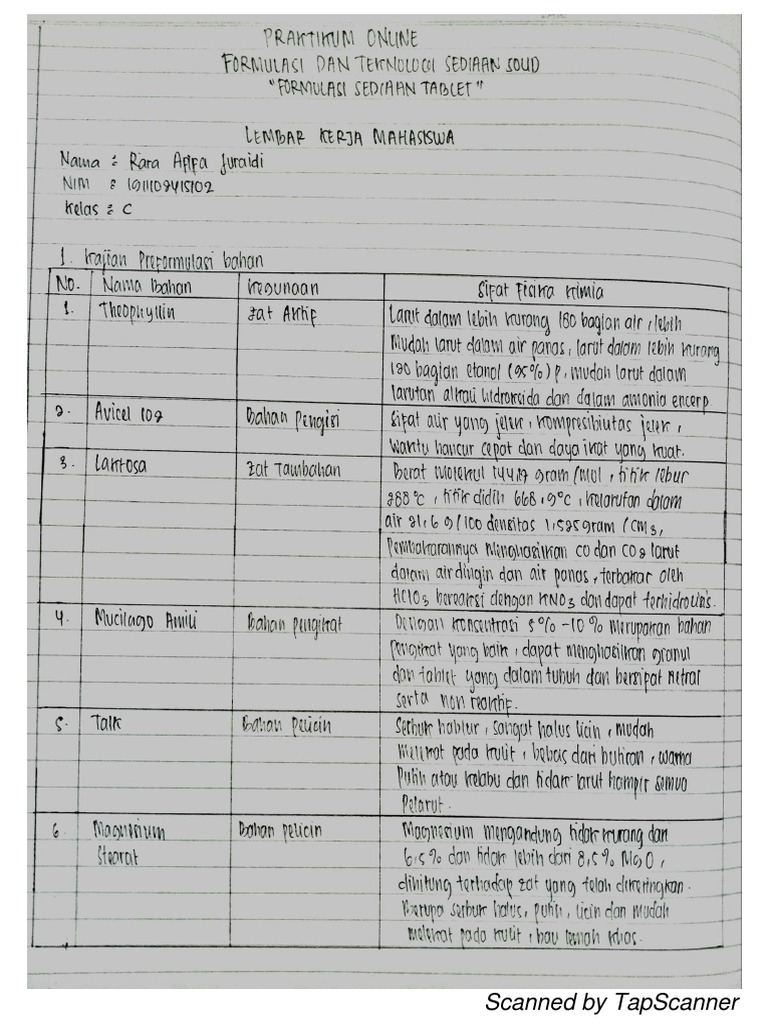 PRAKTIKUM ONLINE
FORMULASI DAN TEKNOLOGI SEDIAAN SOLID
"FORMULASI SEDIAAN TABLET"
LEMBAR KERJA MAHASISWA
Nama : Rara Afifa Juraidi
NIM :
Kelas : C
1. Kajian Preformulasi bahan
No. Nama Bahan Kegunaan Sifat Fisika Kimia
1. Theophyllin Zat Aktif Larut dalam lebih kurang 180 bagian air, lebih
mudah larut dalam air panas, larut dalam lebih kurang
120 bagian etanol (95%) P, mudah larut dalam
larutan alkali hidroksida dan dalam amonia encerp
2. Avicel 102 Bahan Pengisi Sifat alir yang jelek, kompresibilitas jelek,
waktu hancur cepat dan daya ikat yang kuat.
3. Laktosa Zat Tambahan Berat molekul gram/mol, titik lebur
288°C, titik didih 668,9°C, kelarutan dalam
air 21,6 g/100 densitas 1,525 gram/cm3,
Pembakarannya menghasilkan CO dan CO2 larut
dalam air dingin dan air panas, terbakar oleh
HClO3 bereaksi dengan KNO3 dan dapat terhidrolisis.
4. Mucilago Amili Bahan pengikat Dengan konsentrasi 5% -10% merupakan bahan
Pengikat yang baik, dapat menghasilkan granul
dan tablet yang dalam tubuh dan bersifat netral
serta non reaktif.
5. Talk Bahan pelicin Serbuk hablur, sangat halus licin, mudah
melekat pada kulit, bebas dari butiran, warna
Putih atau kelabu dan tidak larut hampir semua
Pelarut.
6. Magnesium Bahan pelicin Magnesium mengandung tidak kurang dari
Stearat 6,5% dan tidak lebih dari 8,5% MgO,
dihitung terhadap zat yang telah dikeringkan.
Berupa serbuk halus, putih, licin dan mudah
melekat pada kulit, bau lemah khas.
Scanned by TapScanner